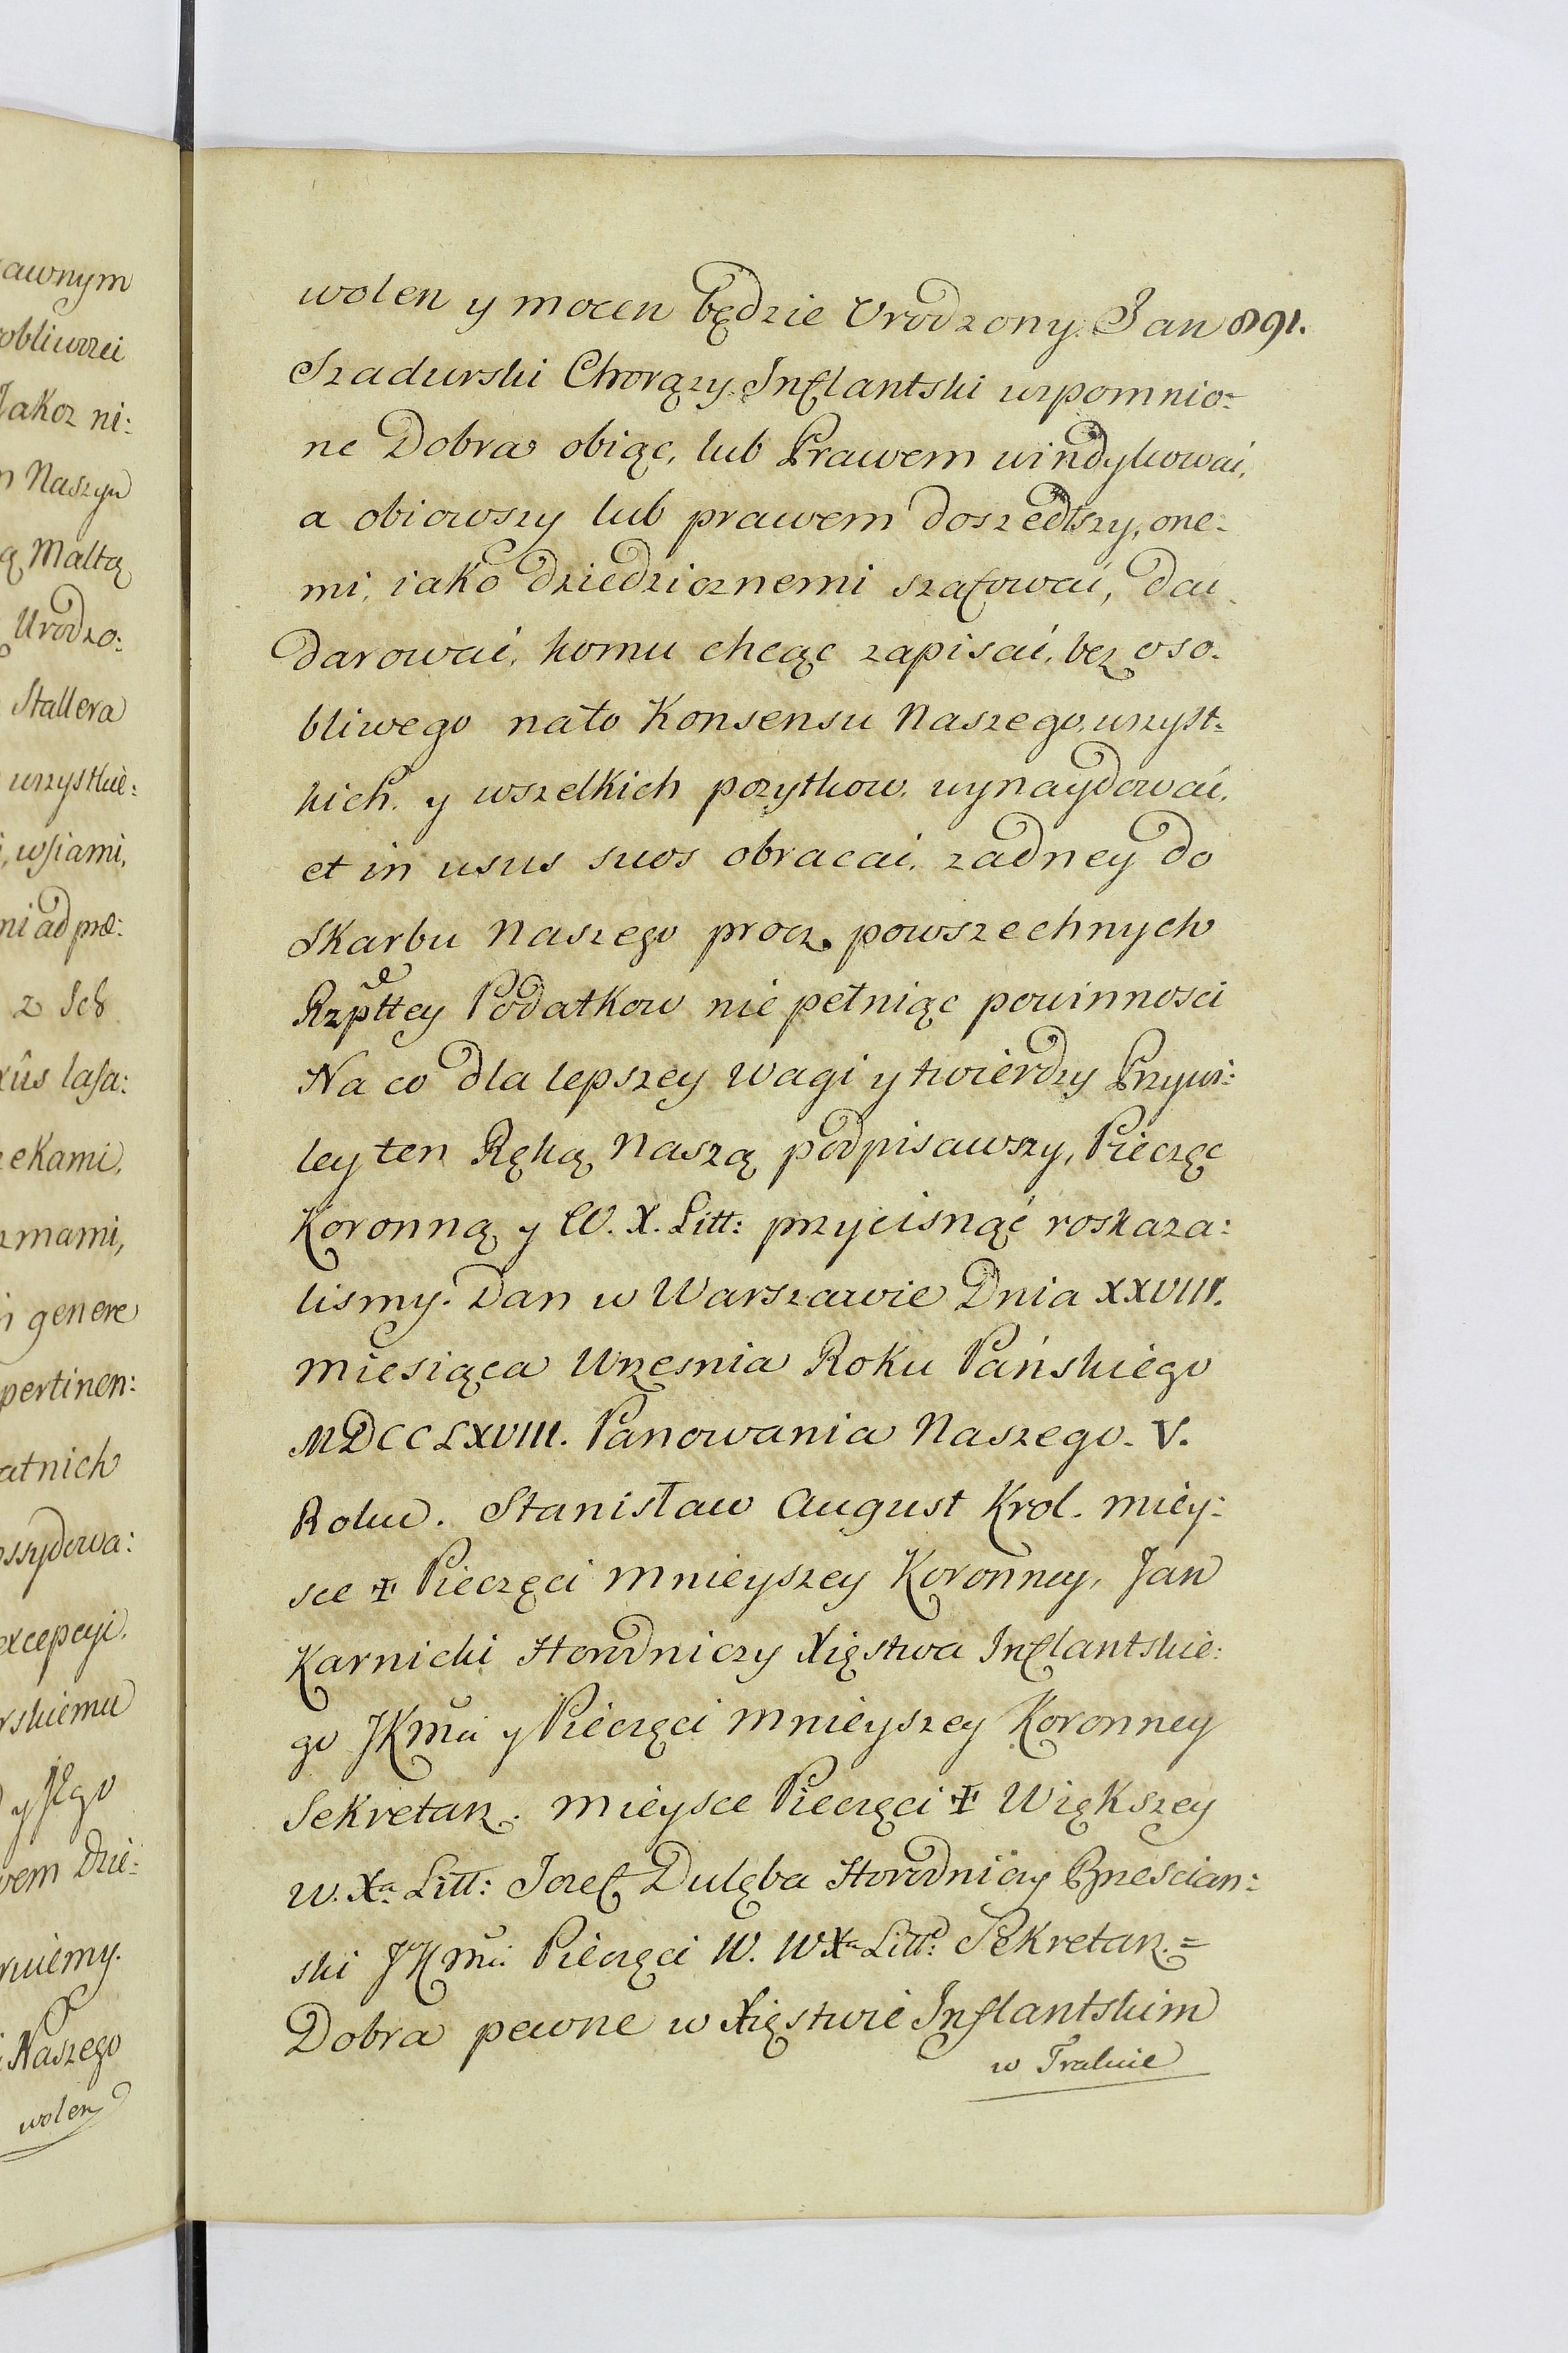 awnym
obliwzei
Jakoz ni:
Naszyn
ą Maltą
Urodzo:
Stallera
wszystkie:
, wsiami,
ni ad præ:
z Sch
xûs lasa:
zekami,
zmami,
genere
pertinen:
atnich
ossydowa:
excepcyi,
rskiemu
y Jego
wem Dzie:
ruiemy.
Naszego
wolen
891.
wolen y mocen będzie Urodzony Jan
Szadurski Chorązy Inflantski wzpomnio:
ne Dobra obiąc, lub Prawem windykowai,
a obiowszy lub prawem doszedłszy, one:
mi, iako dziedzicznemi szafowai, dai
darowai, komu chcąc zapisai, bez oso:
bliwego nato Konsensu Naszego, wszyst:
kich, y wszelkich pozytkow, wynaydowai,
et in usus suos obracai, zadney do
Skarbu Naszego procz powszechnych
Rzpttey Podatkow nie pełniąc powinnosci
Na co dla lepszey wagi y twierdzy Przywi:
ley ten Ręką Naszą podpisawszy, Pieczęc
Koronną y W. X. Litt: przycisnąć roskaza:
lismy. Dan w Warszawie Dnia XXVIII.
miesiąca Wrzesnia Roku Pańskiego
MDCCLXVIII. Panowania Naszego. V.
Roku. Stanisław August Krol. miey:
sce ✠ Pieczęci mnieyszey Koronney, Jan
Karnicki Horodniczy Xięstwa Inflantskie:
go JKmci y Pieczęci mnieyszey Koronney
Sekretarz. mieysce Pieczęci ✠ Większey
W. Xa. Litt: Jozef Dulęba Horodniczy Brzescian:
ski JKmci Pieczęci W. W Xa Litt: Sekretarz.=
Dobra pewne w Xięstwie Inflantskim
w Trakcie